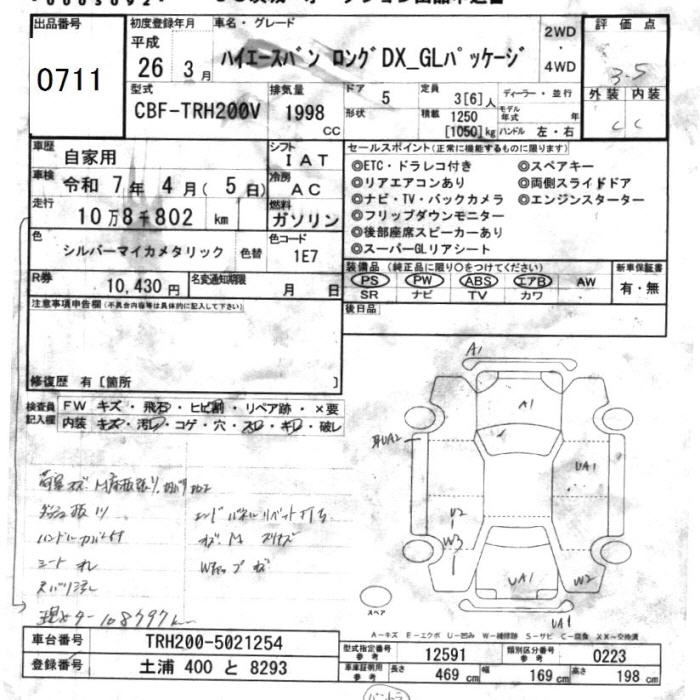 出品番号
0711
初度登録年月
平成
26年 3月
車名・グレード
ハイエースバン ロングDX_GLパッケージ
2WD
・
4WD
評価点
3.5
外装 内装
C C
型式
CBF-TRH200V
排気量
1998
CC
ドア 5
形状
定員 3[6]人
積載 1250
[1050]kg
ディーラー・並行
モデル
年式 年
ハンドル 左・右
車歴 自家用
シフト IAT
車検 令和 7年 4月 (5日)
冷房 AC
走行 10万8千802 km
燃料 ガソリン
色 シルバーマイカメタリック 色替
色コード 1E7
R券 10,430円
名変通知期限 月 日
セールスポイント(正常に機能するものに限ります)
◎ETC・ドラレコ付き ◎スペアキー
◎リアエアコンあり ◎両側スライドドア
◎ナビ・TV・バックカメラ ◎エンジンスターター
◎フリップダウンモニター
◎後部座席スピーカーあり
◎スーパーGLリアシート
装備品(純正品に限り○をつけてください)
PS PW ABS エアB AW
SR ナビ TV カワ
新車保証書
有・無
後日品
注意事項申告欄(不具合内容等は具体的に記入して下さい)
修復歴 有〔箇所 〕
検査員
記入欄
FW キズ・飛石・ヒビ割・リペア跡・×要
内装 キズ・汚レ・コゲ・穴・スレ・キレ・破レ
ハンドルカバー付
シート
A1
A1
UA2
UA1
U2
W3
UA1
W2
UA1
スペア
A―キズ E―エクボ U―凹み W―補修跡 S―サビ C―腐食 XX―交換済
車台番号 TRH200-5021254
登録番号 土浦 400 と 8293
型式指定番号
参考
12591
類別区分番号
参考
0223
車庫証明用
参考
長さ 469 cm 幅 169 cm 高さ 198 cm